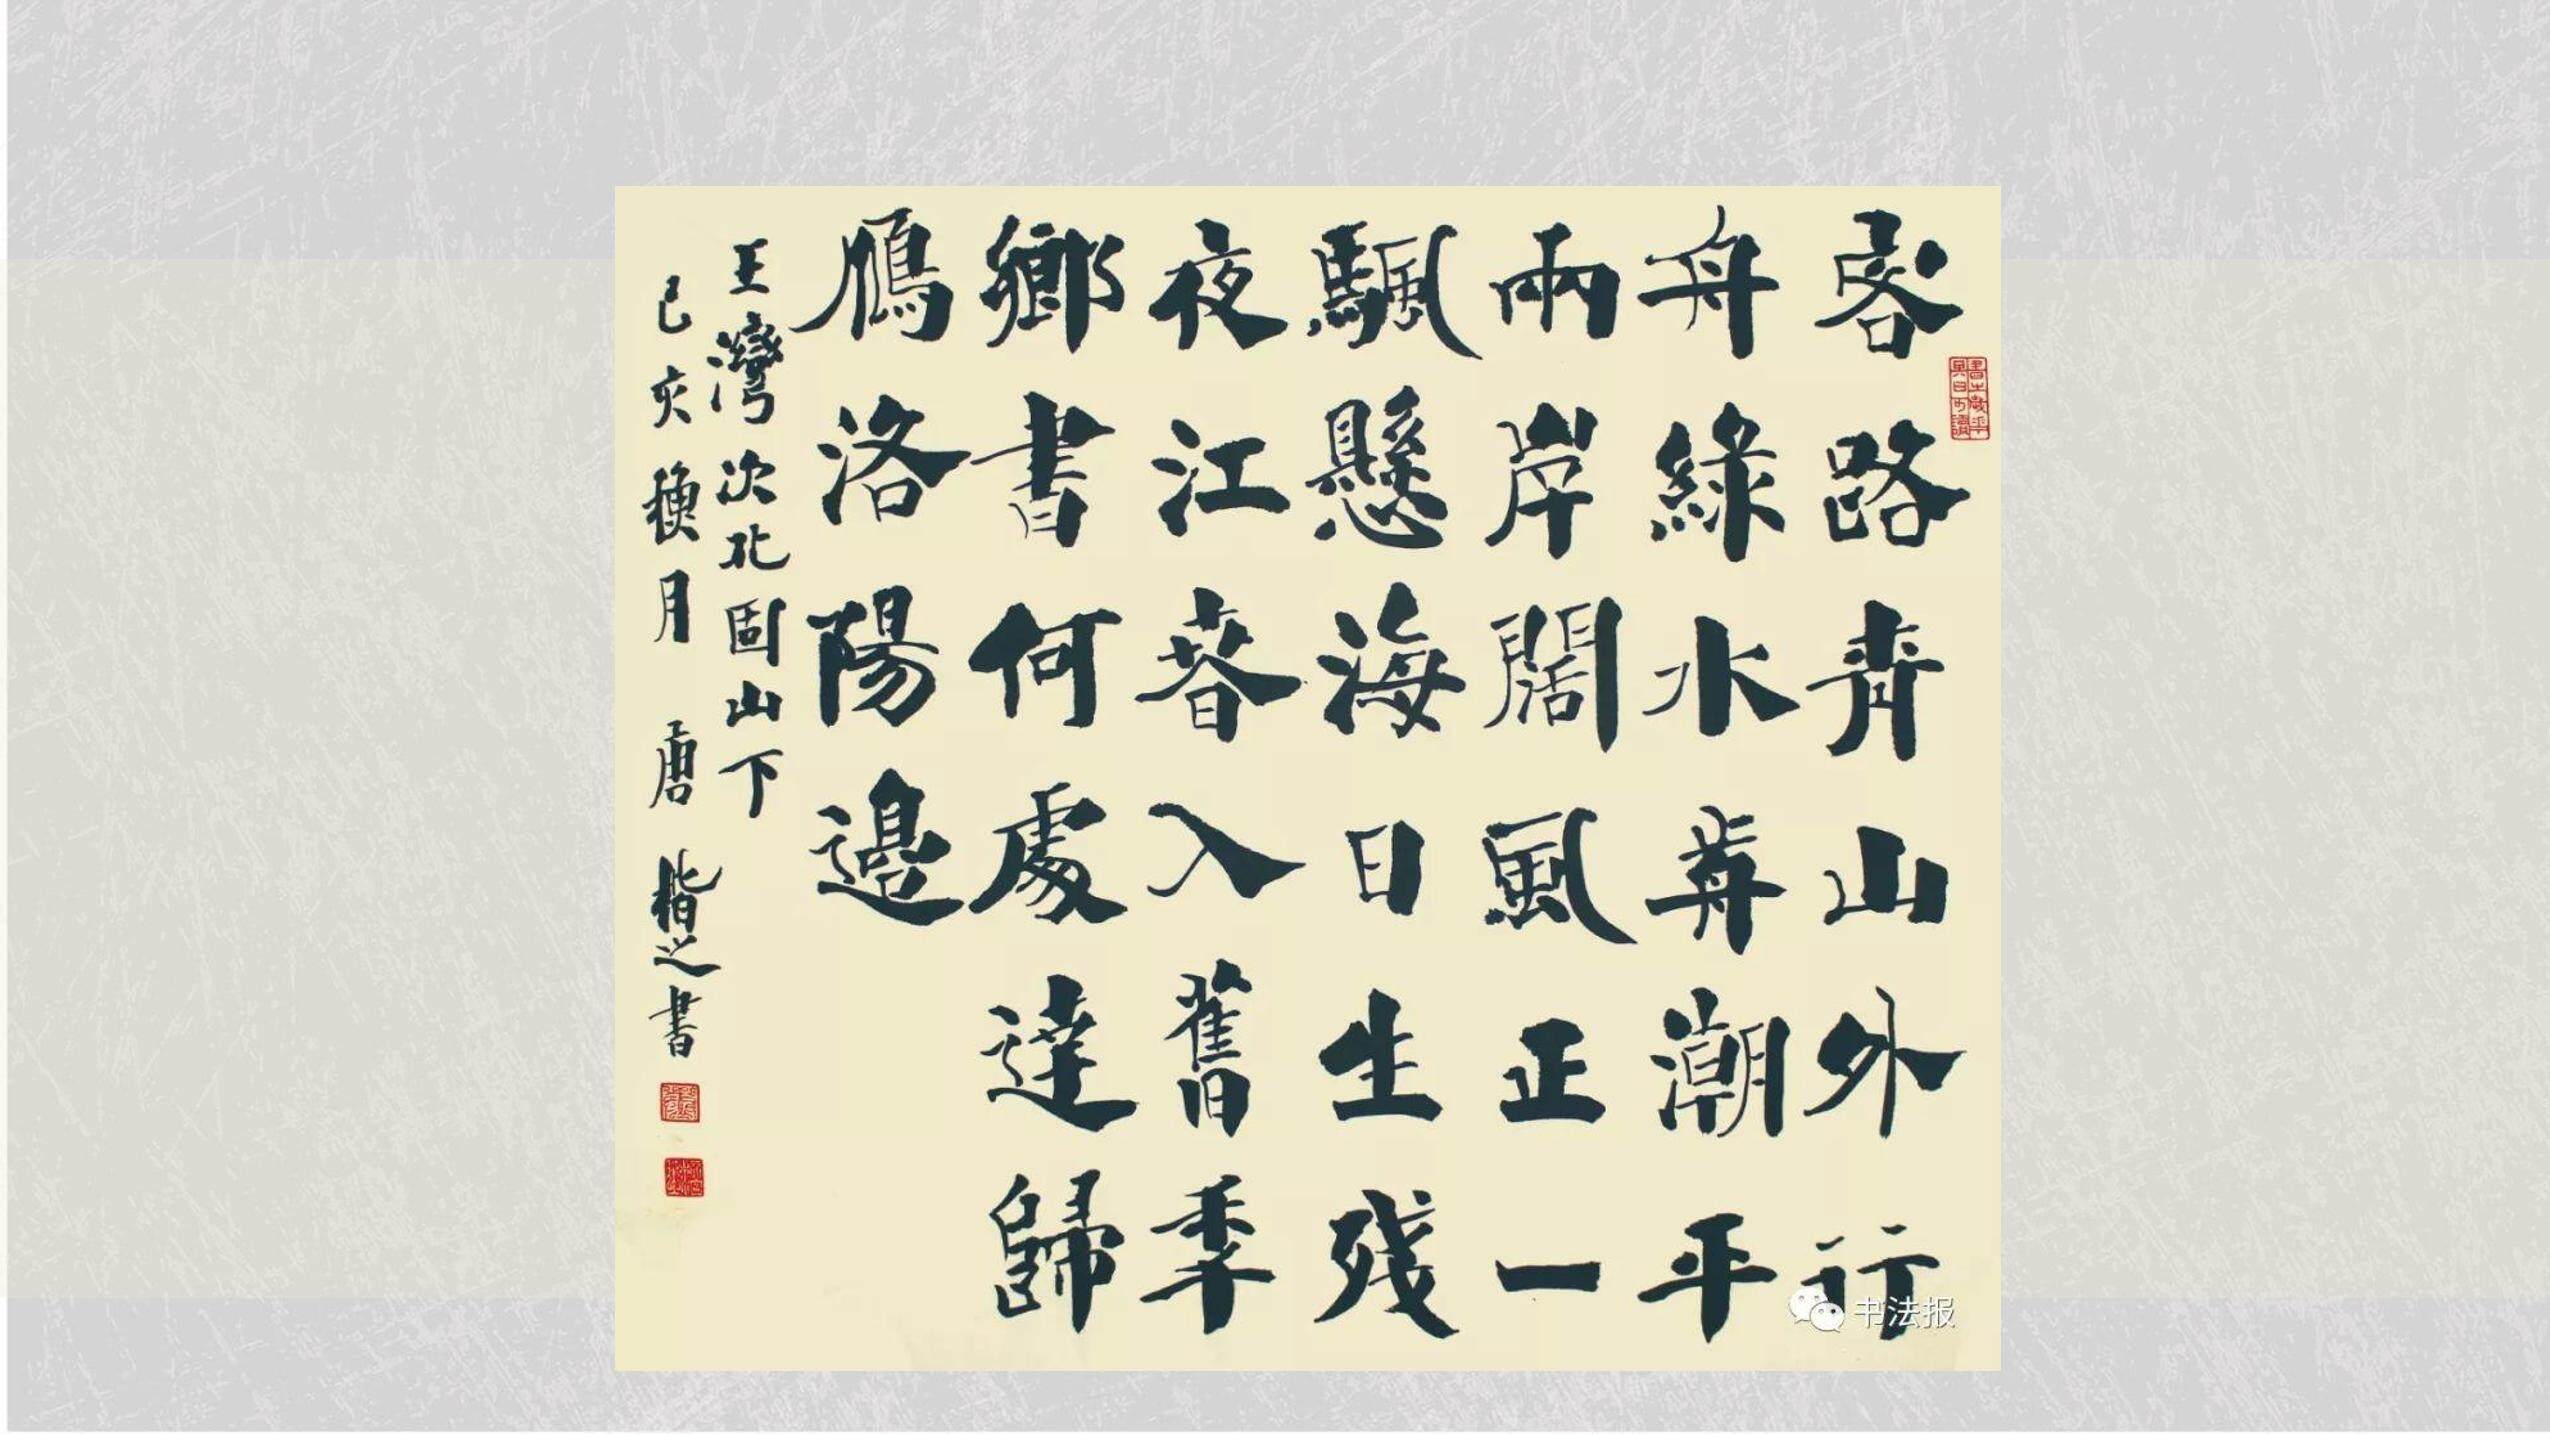 客路青山外行
舟綠水歬潮平
兩岸闊風正一
颿懸海日生残
夜江春入舊秊
鄉書何處達歸
鴈洛陽邊
王灣次北固山下
己亥月 唐楷之書
书法报